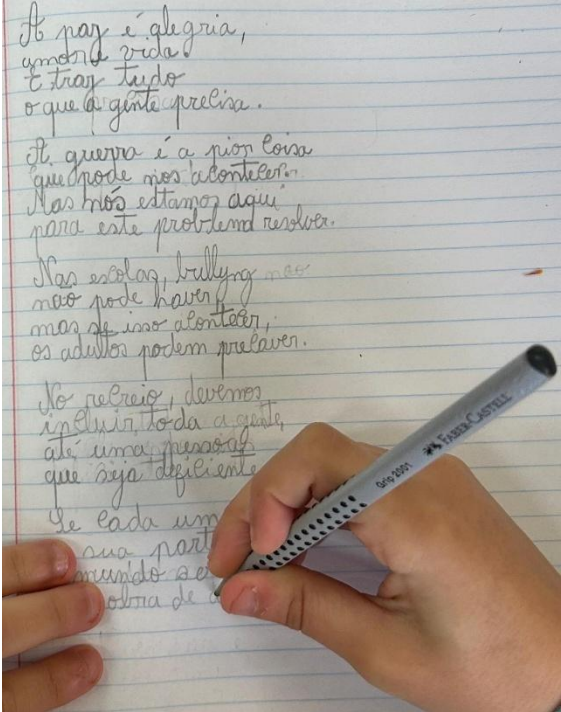 A paz é alegria,
amor e vida
E traz tudo
o que a gente precisa.
A guerra é a pior coisa
que pode nos acontecer.
Mas nós estamos aqui
para este problema resolver.
Nas escolas, bullyng nao
nao pode haver,
mas se isso acontecer,
os adultos podem precaver.
No recreio, devemos
incluir toda a gente,
até uma pessoa
que seja deficiente
Se cada um
sua part
mundo se
obra de a
FABER-CASTELL
Grip 2001